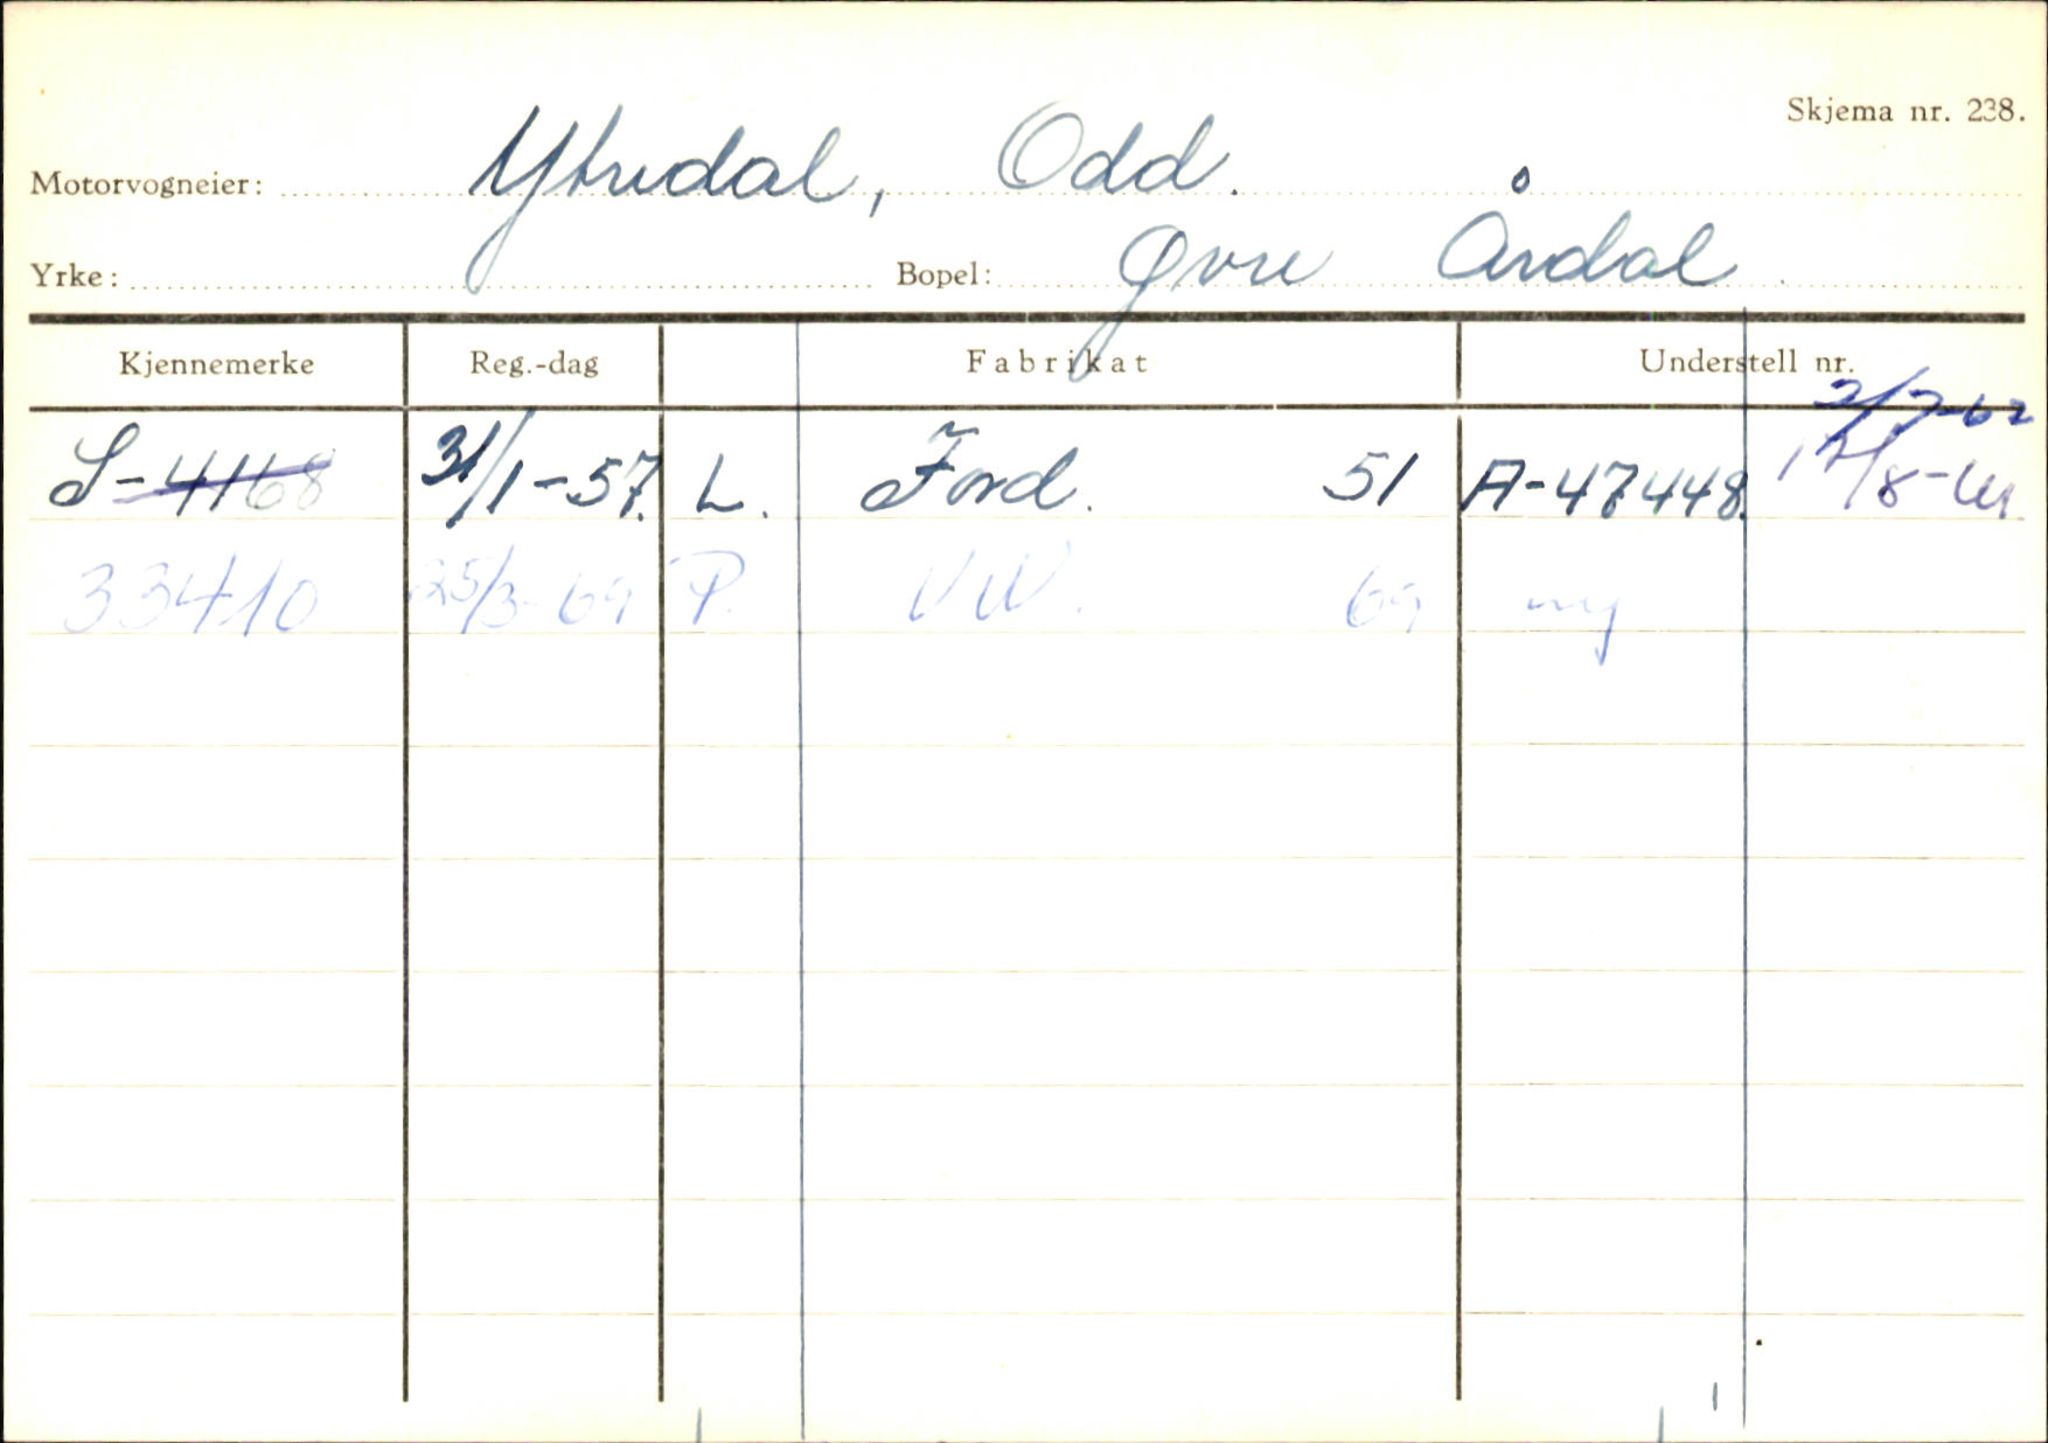 Skjema nr. 238.
Motorvogneier: Ytredal, Odd.
Yrke: Bopel: Øvre Årdal
Kjennemerke Reg.-dag Fabrikat Understell nr.
2/7-62
S-4168 31/1-57. L. Ford. 51 A-47448.
33410 25/3-69 P. VW. 69 ny